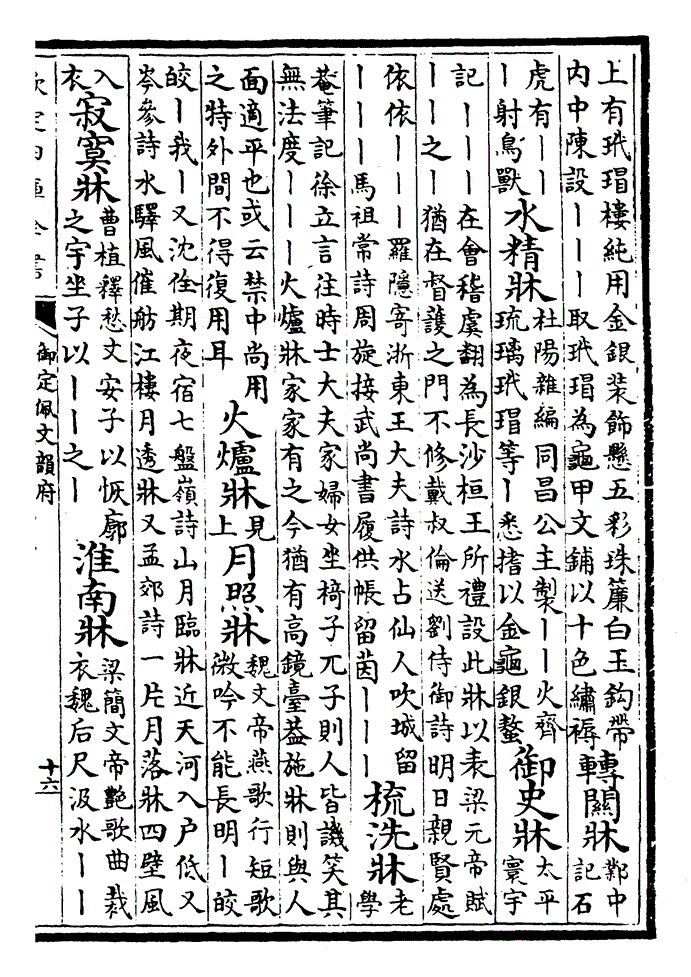 上有玳瑁樓純用金銀装飾懸五彩珠簾白玉鈎帶
内中陳設｜｜｜取玳瑁為龜甲文鋪以十色繡褥
轉關牀
鄴中
記石
虎有｜｜
｜射鳥獸
水精牀
杜陽雜編同昌公主製｜｜火齊
琉璃玳瑁等｜悉揩以金龜銀鰲
御史牀
太平
寰宇
記｜｜｜在會稽虞翻為長沙桓王所禮設此牀以表梁元帝賦
｜｜之｜猶在督護之門不修戴叔倫送劉侍御詩明日親賢處
依依｜｜｜羅隱寄浙東王大夫詩水占仙人吹城留
｜｜｜馬祖常詩周旋接武尚書履供帳留茵｜｜｜
梳洗牀
老
學
菴筆記徐立言往時士大夫家婦女坐椅子兀子則人皆譏笑其
無法度｜｜｜火爐牀家家有之今猶有高鏡臺葢施牀則與人
面適平也或云禁中尚用
之特外間不得復用耳
火爐牀
見
上
月照牀
魏文帝燕歌行短歌
微吟不能長明｜皎
皎｜我｜又沈佺期夜宿七盤嶺詩山月臨牀近天河入户低又
岑參詩水驛風催舫江樓月透牀又孟郊詩一片月落牀四壁風
入
衣
寂寞牀
曹植釋愁文安子以恢廓
之宇坐子以｜｜之｜
淮南牀
梁簡文帝艶歌曲裁
衣魏后尺汲水｜｜
欽定四庫全書
御定佩文韻府
十六